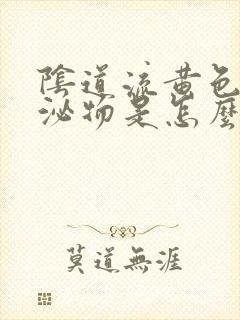 陰道流黄色
泌物是怎麽
莫道無涯